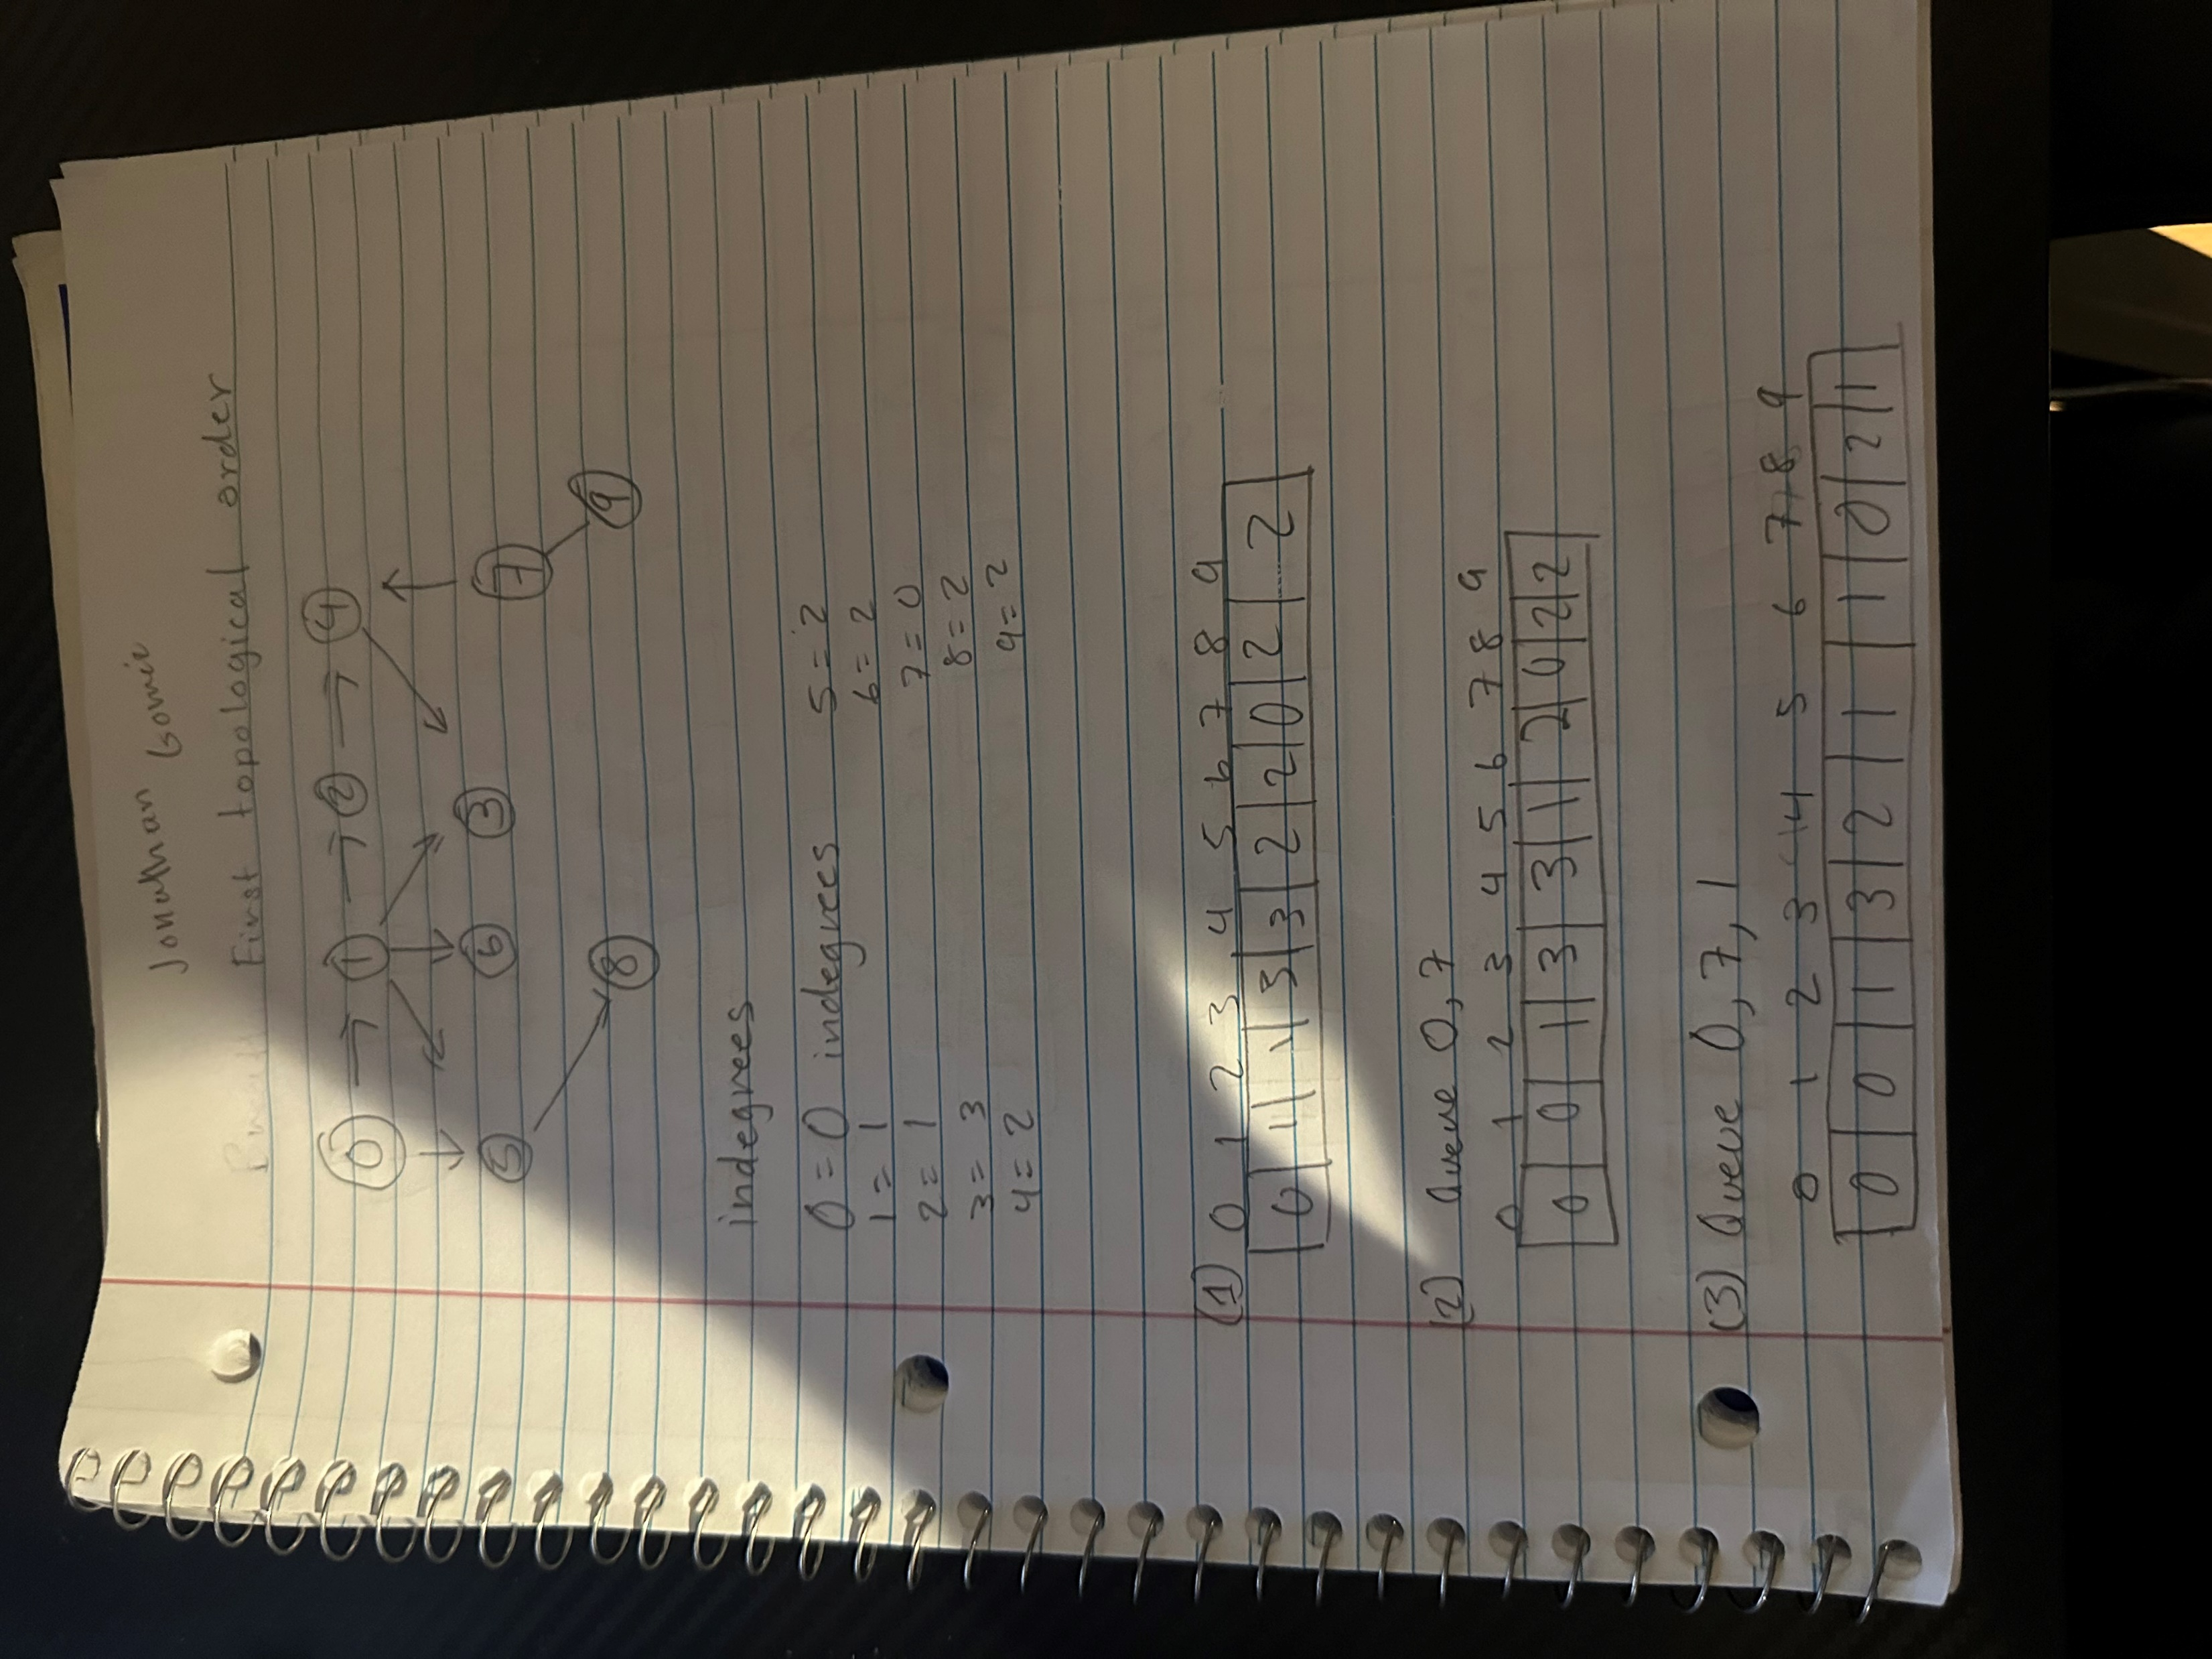 Jonathan
First topological order
0 → 1 → 2 → 4
5 6 3 7
8 9
indegrees
0 = 0 indegrees 5 = 2
1 = 1 6 = 2
2 = 1 7 = 0
3 = 3 8 = 2
4 = 2 9 = 2
(1) 0 1 2 3 4 5 6 7 8 9
0 1 1 3 3 2 2 0 2 2
(2) Queue 0, 7
0 1 2 3 4 5 6 7 8 9
0 0 1 3 3 1 2 0 2 2
(3) Queue 0, 7, 1
0 1 2 3 4 5 6 7 8 9
0 0 1 3 2 1 1 0 2 1